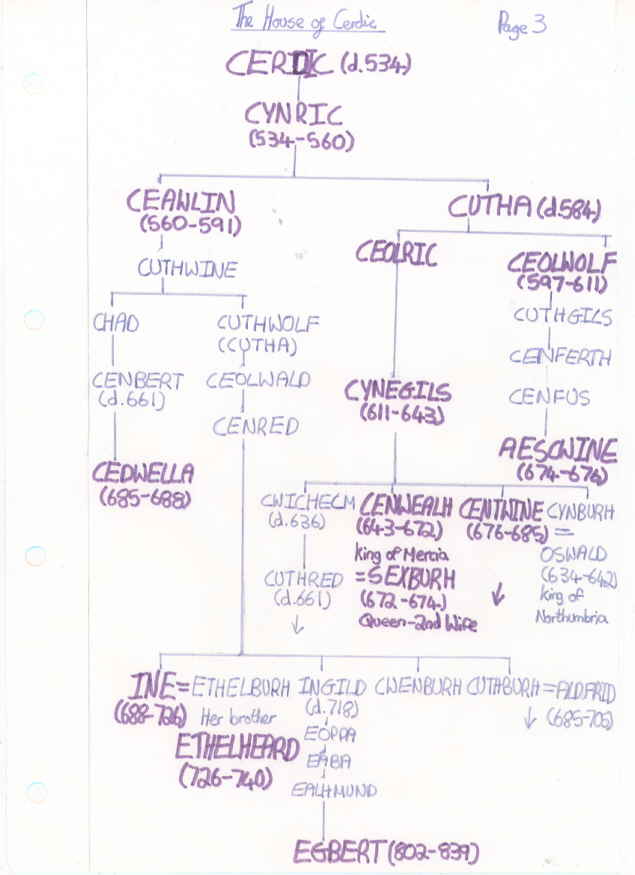 The House of Cerdic
Page 3
CERDIC (d.534)
CYNRIC
(534-560)
CEAWLIN
(560-591)
CUTHA (d.584)
CUTHWINE
CEOLRIC
CEOLWOLF
(597-611)
CHAD
CUTHWOLF
(CUTHA)
CUTHGILS
CENBERT
(d.661)
CEOLWALD
CENFERTH
CENRED
CYNEGILS
(611-643)
CENFUS
CEDWELLA
(685-688)
AESCWINE
(674-676)
CWICHELM
(d.636)
CENWEALH
(643-672)
King of Mercia
CENTWINE
(676-685)
CYNBURH
=
OSWALD
(634-642)
King of
Northumbria
CUTHRED
(d.661)
=SEXBURH
(672-674)
Queen-2nd Wife
INE=ETHELBURH INGILD CWENBURH CUTHBURH=ALDFRID
(688-726) Her brother (d.718) (685-705)
ETHELHEARD
(726-740)
EOPPA
EABA
EALHMUND
EGBERT (802-839)